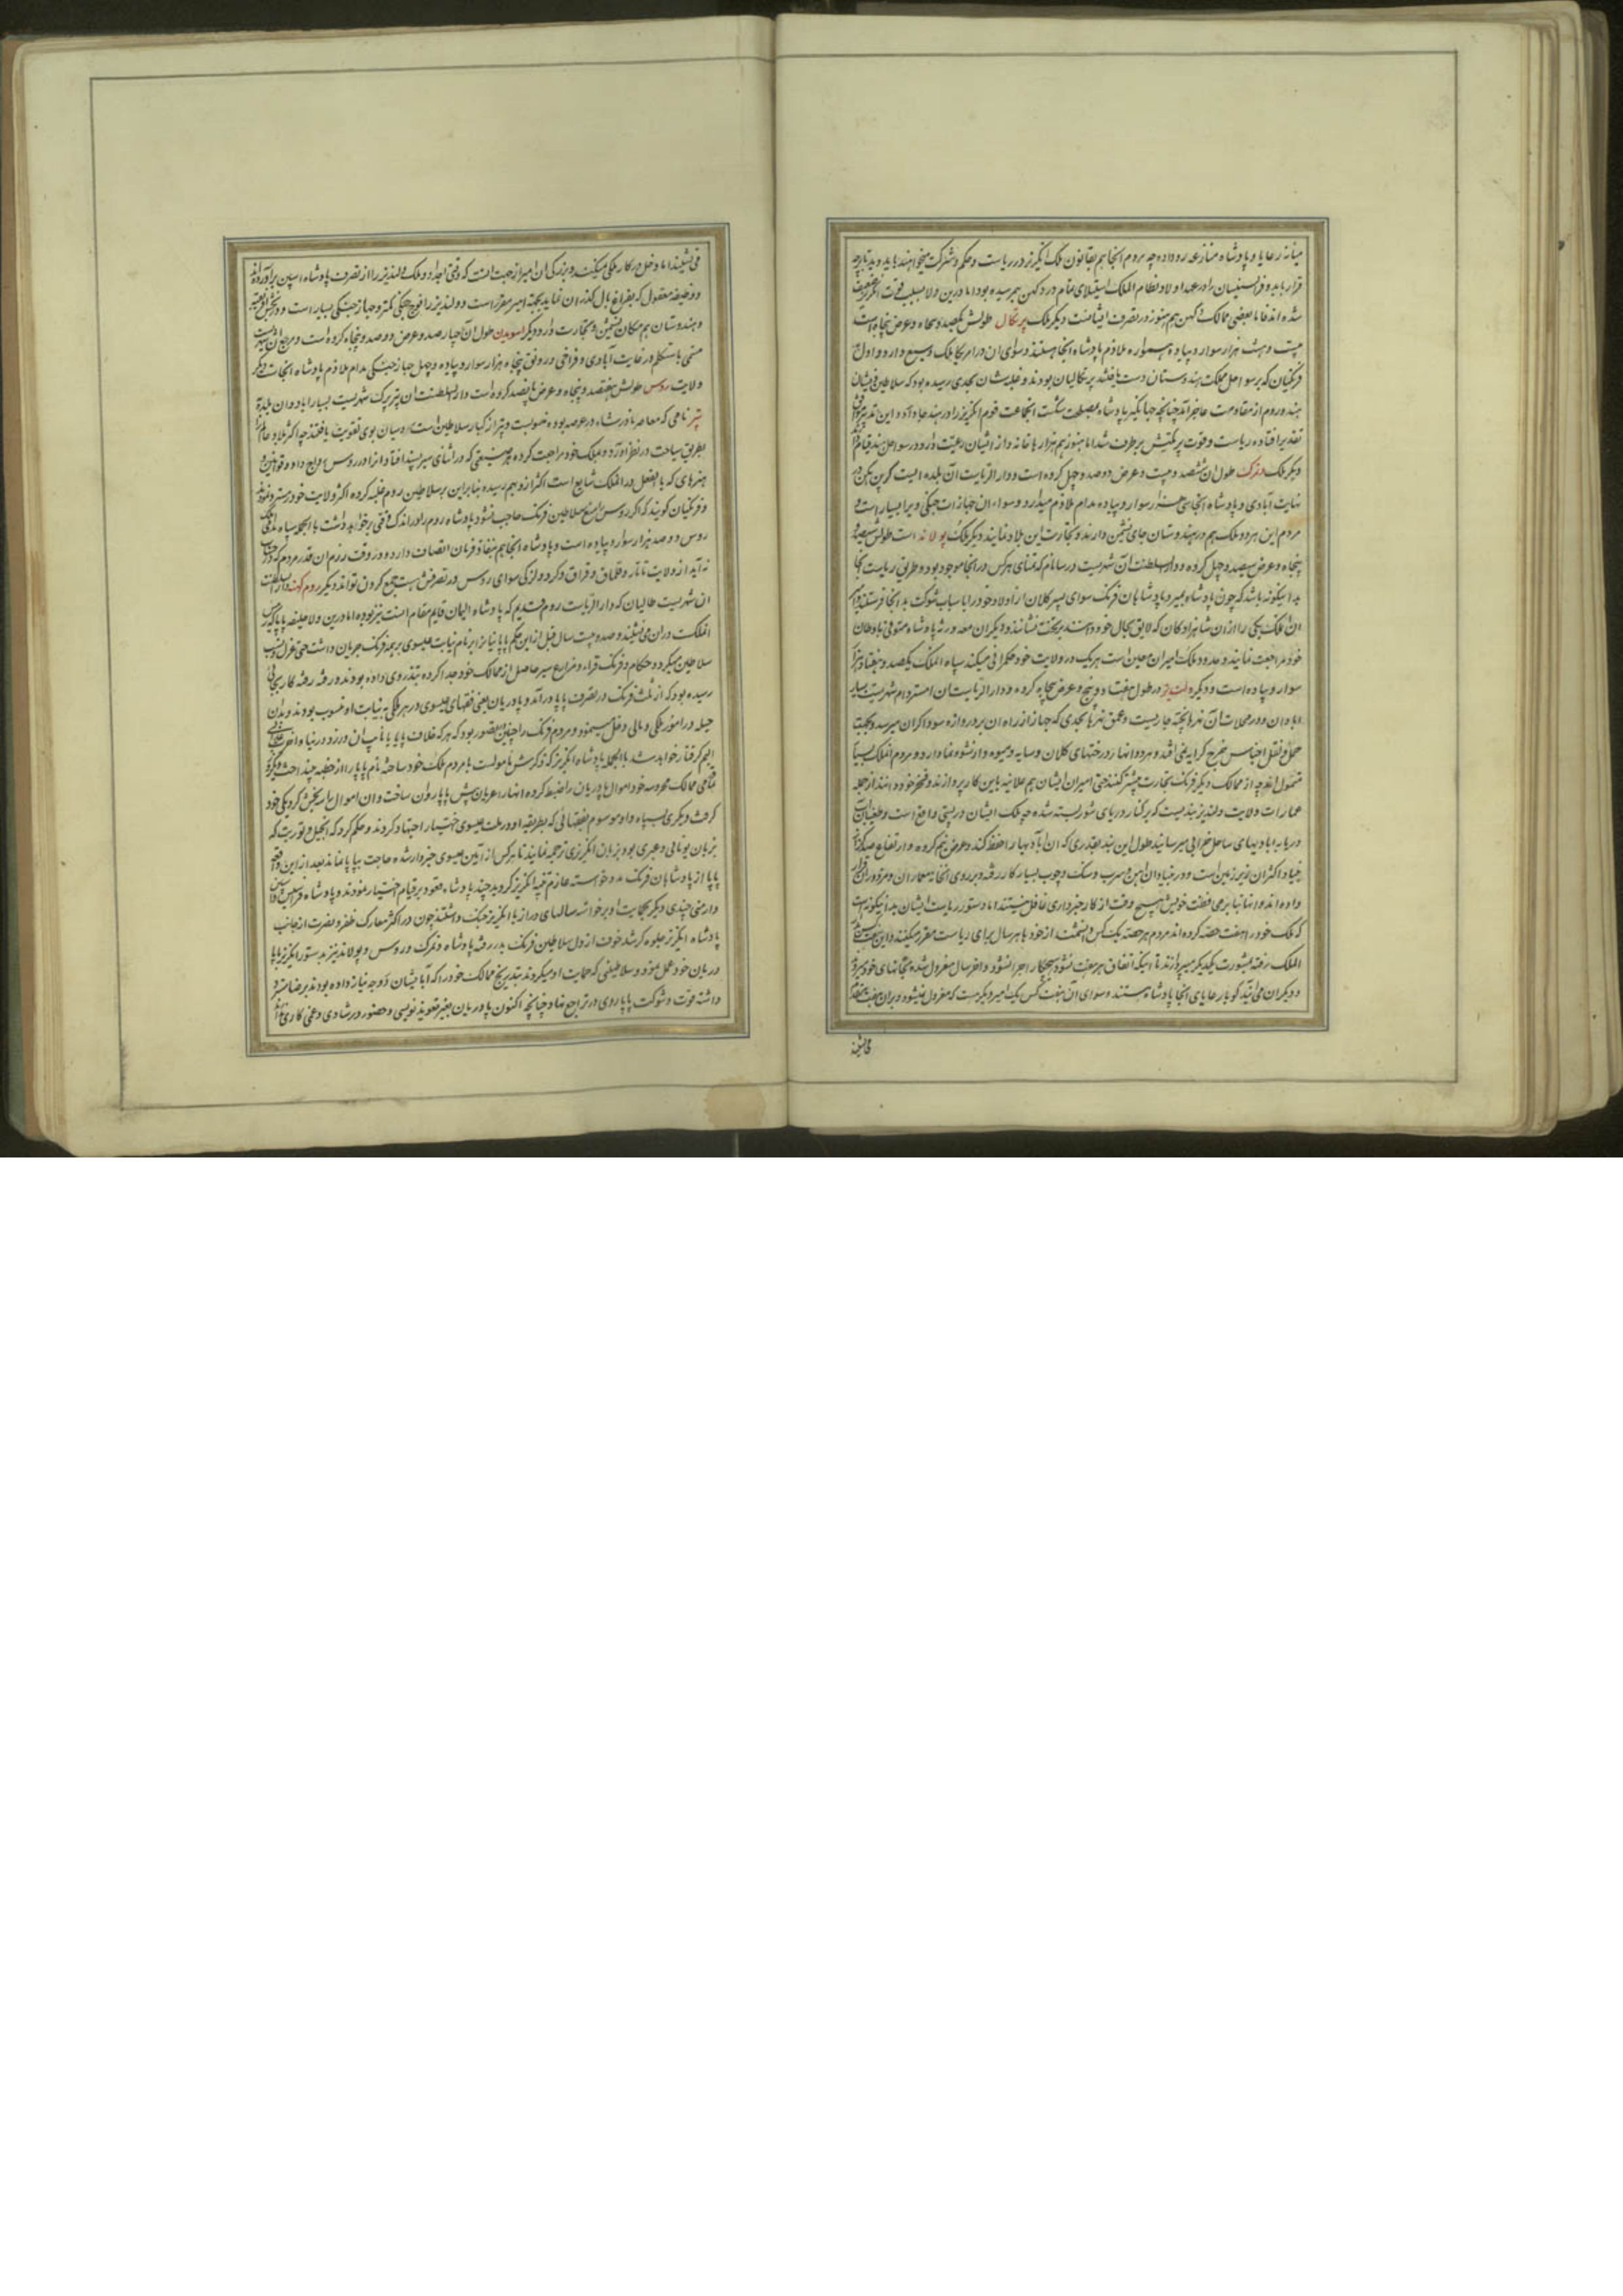 میانه رعایا و پادشاه منازعه رو داده چه مردم انجا هم بقانون ملک انگریز در ریاست و حکم شرکت میخواهند باید دید تا بر چه
قرار یابد و فرانسیسان را در عهد اولاد نظام الملک استیلای تمام در دکهن بهم رسیده بود اما درین ولا بسبب قوت انگریز ضعیف
شده اند اما بعضی ممالک دکهن هم هنوز در تصرف ایشانست دیگر ملک پرتکال طولش یکصد و پنجاه و عرض پنجاه است
بیست و هشت هزار سوار و پیاده همواره ملازم پادشاه انجا هستند و سوای ان در امریکا ملک وسیع دارد و اول
فرنگیان که بر سواحل مملکت هندوستان دست یافتند پرتکالیان بودند و غلبه شان بحدی رسیده بود که سلاطین ذیشان
هند و روم از مقاومت عاجز آمد چنانچه جهانگیر پادشاه بمصلحت شکست انجماعت قوم انگریز را در هند جا داد و این تدبیر موافق
تقدیر افتاده ریاست و قوت پرتکیش برطرف شد اما هنوز هم هزارها خانه دار از ایشان رعیت وار در سواحل هند قیام دارند
دیگر ملک دنمرک طول ان ششصد و بیست و عرض دو صد و چهل کروه است و دار الریاست آن بلده ایست کوپن هیکن در
نهایت آبادی و پادشاه انجا سی هزار سوار و پیاده مدام ملازم میدارد و سواء ان جهازات جنگی ویرا بسیار است و
مردم این هر دو ملک هم در هندوستان جای نشیمن دارند و تجارت این بلاد نمایند دیگر ملک پولاند است طولش ششصد و
پنجاه و عرض سیصد و چهل کروه و دار السلطنت آن شهریست در سا نام که تمنای هر کس در انجا موجود بود و طریق ریاست انجا
بدانگونه باشد که چون پادشاه بمیرد پادشاهان فرنگ سوای پسر کلان از اولاد خود را با سباب شوکت بدانجا فرستند و امرای
ان ملک یکی را از ان شاهزادگان که لایق بحال خود دانند بر تخت نشانند و دیگران معه ورثه پادشاه متوفی باوطان
خود مراجعت نمایند و عدو ملک امیران معین است هر یک در ولایت خود حکمرانی میکند سپاه الملک یکصد و هفتاد هزار
سوار و پیاده است و دیگر ولندیز در طول هفتاد و پنج و عرض پنجاه کروه و دار الریاست ان امستردام شهریست بسیار
اباد ان و در محلات آن نهرها پخته جاریست و عمق نهرها بحدی که جهاز از راه ان بر دروازه سوداگران میرسد و بجهت
حمل و نقل اجناس خرج کرایه نمی افتد و هر دو انها ر درختهای کلان و سایه و میوه دار نشو و نما دارد و مردم الملک بسیار
متمول اند چه از ممالک دیگر فرنگ تجارت بیشتر کنند حتی امیران ایشان هم علانیه باین کار پردازند و فخر خود دانند از جمله
عمارات ولایت ولندیز بندیست که بر کنار دریای شور بسته شده چه ملک ایشان در پستی واقع است و طغیان آب
دریا به ابادیهای ساحل خرابی میرسانید طول این بند بقدری که ان آبادیها را حفظ کند و عرض نیم کروه و ارتفاع صد گز از
بنیاد اکثران زیر زمین است و در بنیاد ان اهن و سرب و سنگ و چوب بسیار کار رفته و بر روی انجا خانه معماران و مزدوران قرار
داده اند و انها نیا بر می فطت خویش هیچ وقت از کار خبرداری غافل نیستند اما دستور ریاست ایشان بدانگونه است
که ملک خود را هفت حصه کرده اند مردم هر حصه یک کس دانشمند از خود با هر سال برای ریاست مقرر میکنند و این هفت کس
الملک رفته بمشورت یکدیگر میپردازند تا اینکه اتفاق هر هفت نشود هیچ کار اجرا نشود و اخر سال معزول شده بخانهای خود میروند
و دیگران می آیند گویا رعایای انجا پادشاه هستند و سوای آن هفت کس یک امیر دیگر هست که معزول نمیشود و بر ان هفت
می نشیند
می نشیند اما دخل در کار ملکی میکند و بزرگی ان امیر از جهت انست که وقتی اجداد او ملک ولندیز را از تصرف پادشاه اسپین بر آورده اند
و وظیفه معقول که بفراغ بال گذران نماید بجهة امیر مقرر است و ولندیز را فوج جنگی کمتر و جهاز جنگی بسیار است و در
و هندوستان هم مکان نشیمن و تجارت دارد و دیگر اسویدن طول آن چهار صد و عرض دو صد و پنجاه کروه است و مرجع ان شهریست
مسمی باستکلم در غایت آبادی و فراخی و رونق پنجاه هزار سوار و پیاده و چهل جهاز جنگی مدام ملازم پادشاه انجاست دیگر
ولایت روس طولش هفتصد و پنجاه و عرض پانصد کروه است و دار السلطنت ان پتربرک شهریست بسیار اباد و ان بلده
پتر نامی که معاصر نادر شاه در عرصه بوده منسوبست و پتر از کبار سلاطین است روسیان بوی تقویت یافتند چه اکثر بلاد عالم را
بطریق سیاحت در نظر آورده بملک خود مراجعت کرده هر صنعتی که در اثنای سیر پسند افتاد از ا در روس رواج داد و قوانین و
هنرهای که بالفعل در الملک شایع است اکثر از و بهم رسیده بنابراین بر سلاطین روم غلبه کرده اکثر ولایت خود بستردند
و فرنگیان گویند که اگر روس را منع سلاطین فرنگ حاجب نشود پادشاه روم را در اندک وقتی برخواهد داشت با لجمله سپاه ملکی
روس دو صد هزار سوار و پیاده است و پادشاه انجا هم بنفاذ فرمان اتصاف دارد و در وقت رزم ان قدر مردم که در حساب
نه آید از ولایت تاتار و قلماق و قزاق و کرد و لزکی سوای روس در تصرفش هست جمع کردن تواند دیگر روم کهنه دار السلطنت
ان شهریست طالیان که دار الریاست روم قدیم که پادشاه المان قایم مقام انست نیز بوده اما درین ولا خلیفه پاپا که رئیس
الملکت در ان می نشیند و صد و بیست سال قبل از این حکم پاپا بنا بر نام نیابت عیسوی بر همه فرنگ جریان داشت حتی عزل و نصب
سلاطین میکرد و حکام و فرنگ قراء و مزارع سیر حاصل از ممالک خود جدا کرده بنذر وی داده بودند و رفته رفته کار بجائی
رسیده بود که از ثلث فرنگ در تصرف پاپا در آمد و پادریان یعنی فقهای عیسوی در هر ملکی به نیابت او منسوب بودند و بدان
حیله در امور ملکی و مالی دخل مینمودند و مردم فرنگ را چنین متصور بود که هر که خلاف پاپا یا نایب ان ورزد در دنیا و اخرت
الیم گرفتار خواهد شد با الجمله پادشاه انگریز که ذکرش نامولست با مردم ملک خود ساخته نام پاپا را از خطبه
تمامی ممالک محروسه خود اموال پادریان را ضبط کرده انها را عریان پیش پاپا روان ساخت و ان اموال را سه بخش کرد یکی خود
گرفت و دیگری بسپاه داد و سوم بفقهائی که بطریقه او در ملت عیسوی اختیار اجتهاد کردند و حکم کرد که انجیل و توریت که
بزبان یونانی و عبری بود بزبان انگریزی ترجمه نمایند تا هر کس از آیین عیسوی خبردار شده حاجت بپاپا نماند بعد از این واقعه
پاپا از پادشاهان فرنگ مدد خواسته عازم تنبیه انگریز گردید چند پادشاه معقود بر قیام اختیار نمودند و پادشاه فرانسیس و
و ارمنی چندی دیگر بحمایت او برخواسته سالهای دراز با انگریز جنگ داشتند چون در اکثر معارک ظفر و نصرت از جانب
پادشاه انگریز جلوه گر شد خوف از دل سلاطین فرنگ بدر رفته پادشاه دنمرک و روس و پولاند نیز بدستور انگریز با پا
دریان خود عمل نمود و سلاطینی که حمایت او میکردند بتدریج ممالک خود را که آبا ایشان بوجه نیاز داده بودند بر ضا مسترد
داشته قوت و شوکت پاپا روی در تراجع نهاد چنانچه اکنون پادریان بغیر تعویذ نویسی و حضور در شادی و غمی کاری